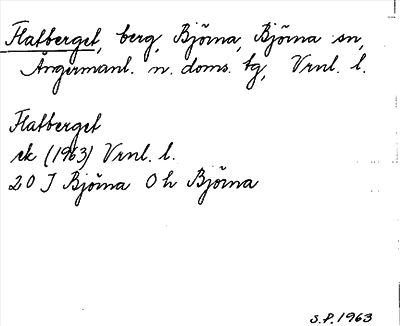 Flatberget, berg, Björna, Björna sn,
Ångermanl. n. doms. tg, Vrnl. l.
Flatberget
ek (1963) Vrnl. l.
20 J Björna O h Björna
S.P. 1963